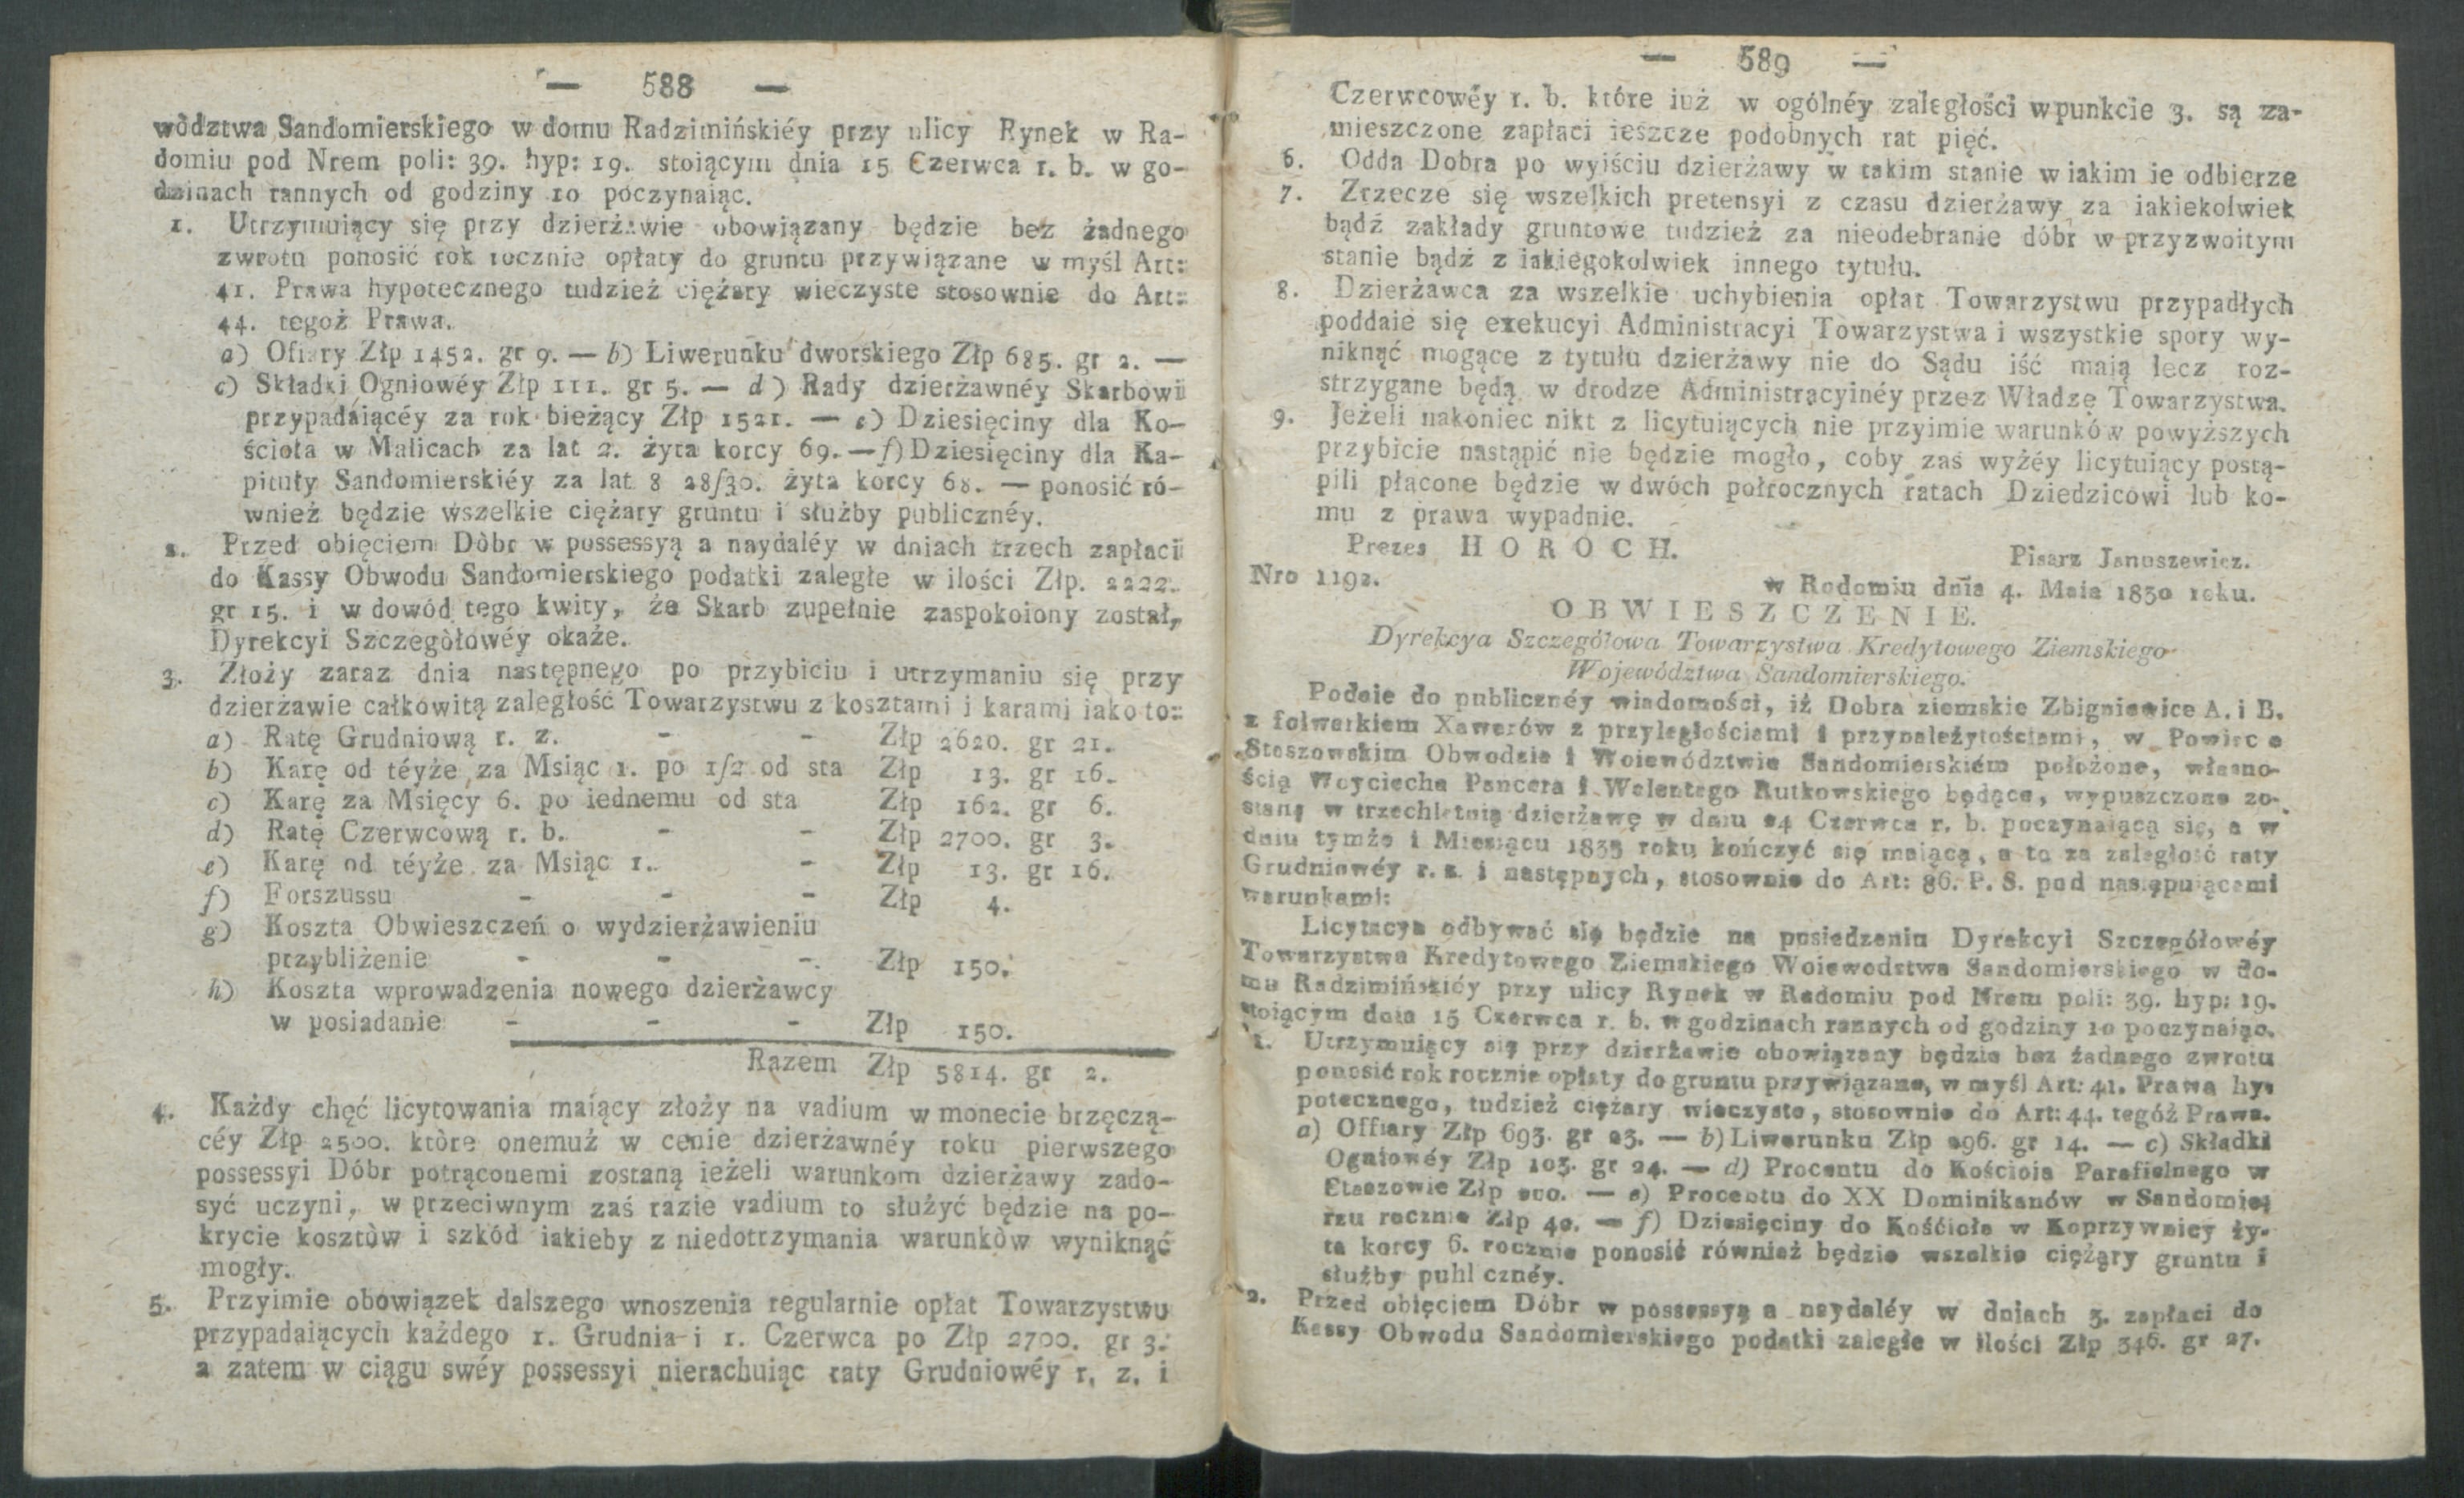 — 588 —
wództwa Sandomierskiego w domu Radzimińskiéy przy ulicy Rynek w Ra-
domiu pod Nrem poli: 39. hyp: 19. stoiącym dnia 15 Czerwca r. b. w go-
dzinach rannych od godziny 10 poczynaiąc.
1. Utrzymuiący się przy dzierżawie obowiązany będzie bez żadnego
zwrotu ponosić rok rocznie opłaty do gruntu przywiązane w myśl Art:
41. Prawa hypotecznego tudzież ciężary wieczyste stosownie do Art:
44. tegoż Prawa.
a) Ofiary Złp 1452. gr 9. — b) Liwerunku dworskiego Złp 685. gr 2. —
c) Składki Ogniowéy Złp 111. gr 5. — d) Rady dzierżawnéy Skarbowi
przypadaiącéy za rok bieżący Złp 1521. — e) Dziesięciny dla Ko-
ścioła w Malicach za lat 2. żyta korcy 69. — f) Dziesięciny dla Ka-
pituły Sandomierskiéy za lat 8 28/30. żyta korcy 68. — ponosić ró-
wnież będzie wszelkie ciężary gruntu i służby publicznéy.
2. Przed obięciem Dòbr w possessyą a naydaléy w dniach trzech zapłaci
do Kassy Obwodu Sandomierskiego podatki zaległe w ilości Złp. 2222.
gr 15. i w dowód tego kwity, że Skarb zupełnie zaspokoiony został,
Dyrekcyi Szczegòłowéy okaże.
3. Złoży zaraz dnia następnego po przybiciu i utrzymaniu się przy
dzierżawie całkowitą zaległość Towarzystwu z kosztami i karami iako to:
a) Ratę Grudniową r. z. - - Złp 2620. gr 21.
b) Karę od téyże za Msiąc 1. po 1/2 od sta Złp 13. gr 16.
c) Karę za Msięcy 6. po iednemu od sta Złp 162. gr 6.
d) Ratę Czerwcową r. b. - - Złp 2700. gr 3.
e) Karę od téyże za Msiąc 1. - Złp 13. gr 16.
f) Forszussu - - - Złp 4.
g) Koszta Obwieszczeń o wydzierżawieniu
przybliżenie - - - Złp 150.
h) Koszta wprowadzenia nowego dzierżawcy
w posiadanie - - - Złp 150.
Razem Złp 5814. gr 2.
4. Każdy chęć licytowania maiący złoży na vadium w monecie brzęczą-
céy Złp 2500. które onemuż w cenie dzierżawnéy roku pierwszego
possessyi Dóbr potrąconemi zostaną ieżeli warunkom dzierżawy zado-
syć uczyni, w przeciwnym zaś razie vadium to służyć będzie na po-
krycie kosztòw i szkód iakieby z niedotrzymania warunkòw wyniknąć
mogły.
5. Przyimie obowiązek dalszego wnoszenia regularnie opłat Towarzystwu
przypadaiących każdego 1. Grudnia i 1. Czerwca po Złp 2700. gr 3.
a zatem w ciągu swéy possessyi nierachuiąc raty Grudniowéy r. z. i
— 589 —
Czerwcowéy r. b. które iuż w ogólnéy zaległości w punkcie 3. są za-
mieszczone zapłaci ieszcze podobnych rat pięć.
6. Odda Dobra po wyiściu dzierżawy w takim stanie w iakim ie odbierze
7. Zrzecze się wszelkich pretensyi z czasu dzierżawy za iakiekolwiek
bądź zakłady gruntowe tudzież za nieodebranie dóbr w przyzwoitym
stanie bądź z iakiegokolwiek innego tytułu.
8. Dzierżawca za wszelkie uchybienia opłat Towarzystwu przypadłych
poddaie się exekucyi Administracyi Towarzystwa i wszystkie spory wy-
niknąć mogące z tytułu dzierżawy nie do Sądu iść maią lecz roz-
strzygane będą w drodze Administracyinéy przez Władzę Towarzystwa.
9. Jeżeli nakoniec nikt z licytuiących nie przyimie warunków powyższych
przybicie nastąpić nie będzie mogło, coby zaś wyżéy licytuiący postą-
pili płacone będzie w dwóch połrocznych ratach Dziedzicowi lub ko-
mu z prawa wypadnie.
Prezes HOROCH.
Pisarz Januszewicz.
Nro 1192.
w Radomiu dnia 4. Maia 1830 roku.
OBWIESZCZENIE.
Dyrekcya Szczegółowa Towarzystwa Kredytowego Ziemskiego
Województwa Sandomierskiego.
Podaie do publicznéy wiadomości, iż Dobra ziemskie Zbigniewice A. i B.
z folwarkiem Xawerów z przyległościami i przynależytościami, w Powiec e
Staszowskim Obwodzie i Woiewództwie Sandomierskiém położone, własno-
ścią Woyciecha Pancera i Walentego Rutkowskiego będące, wypuszczone zo-
staną w trzechletnią dzierżawę w dniu 24 Czerwca r. b. poczynaiącą się, a w
dniu tymże i Miesiącu 1833 roku kończyć się maiącą, a to za zaległość raty
Grudniowéy r. z. i następnych, stosownie do Art: 86. P. S. pod następuiącemi
warunkami:
Licytacya odbywać się będzie na posiedzeniu Dyrekcyi Szczegółowéy
Towarzystwa Kredytowego Ziemskiego Woiewodztwa Sandomierskiego w do-
mu Radzimińskiéy przy ulicy Rynek w Radomiu pod Nrem poli: 39. hyp: 19.
stoiącym dnia 15 Czerwca r. b. w godzinach rannych od godziny 10 poczynaiąc.
1. Utrzymuiący się przy dzierżawie obowiązany będzie bez żadnego zwrotu
ponosić rok rocznie opłaty do gruntu przywiązane, w myśl Art: 41. Prawa hy-
potecznego, tudzież ciężary wieczyste, stosownie do Art: 44. tegóż Prawa.
a) Offiary Złp 693. gr 23. — b) Liwerunku Złp 296. gr 14. — c) Składki
Ogniowéy Złp 103. gr 24. — d) Procentu do Kościoła Parafialnego w
Staszowie Złp 200. — e) Procentu do XX Dominikanów w Sandomie-
rzu rocznie Złp 40. — f) Dziesięciny do Kośćioła w Koprzywnicy ży-
ta korcy 6. rocznie ponosić również będzie wszelkie ciężary gruntu i
służby puhl cznéy.
2. Przed obięciem Dóbr w possessyą a naydaléy w dniach 3. zapłaci do
Kassy Obwodu Sandomierskiego podatki zaległe w ilości Złp 346. gr 27.